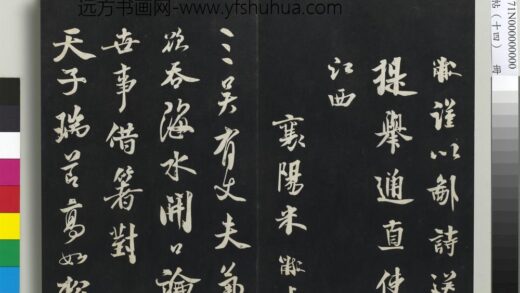 黻谨以鄙詩送
提舉通直使
江西
襄陽米黻上
三吴有丈夫氣
欲吞海水開口論
世事借箸對
天子瑞節高如
远方书画网-www.yfshuhua.com
71N000000000
帖(十四) 册